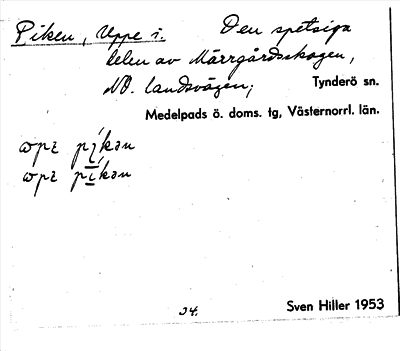 Piken, Uppe i. Den spetsiga
delen av Märrgårdsskogen,
NO. landsvägen; Tynderö sn.
Medelpads ö. doms. tg, Västernorrl. län.
34.
Sven Hiller 1953